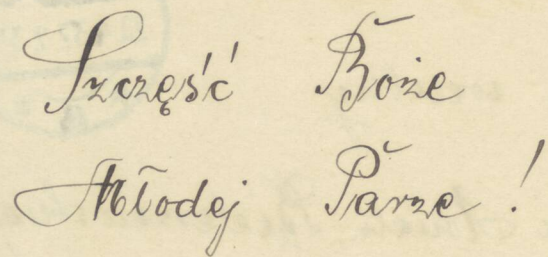 Szczęść Boże
Młodej Parze!